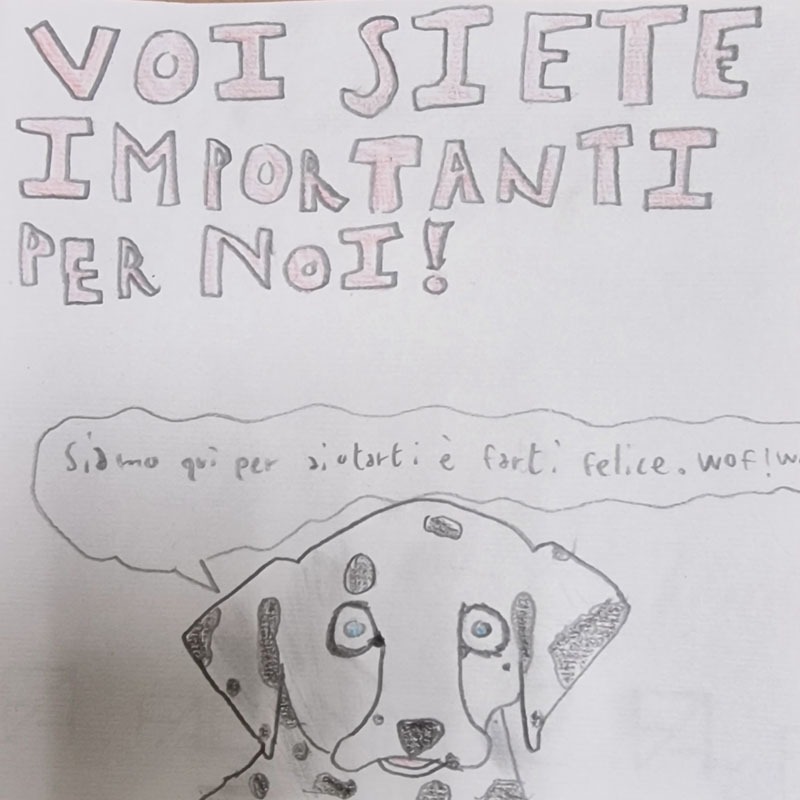 VOI SIETE
IMPORTANTI
PER NOI!
Siamo qui per aiutarti è farti felice. wof! w